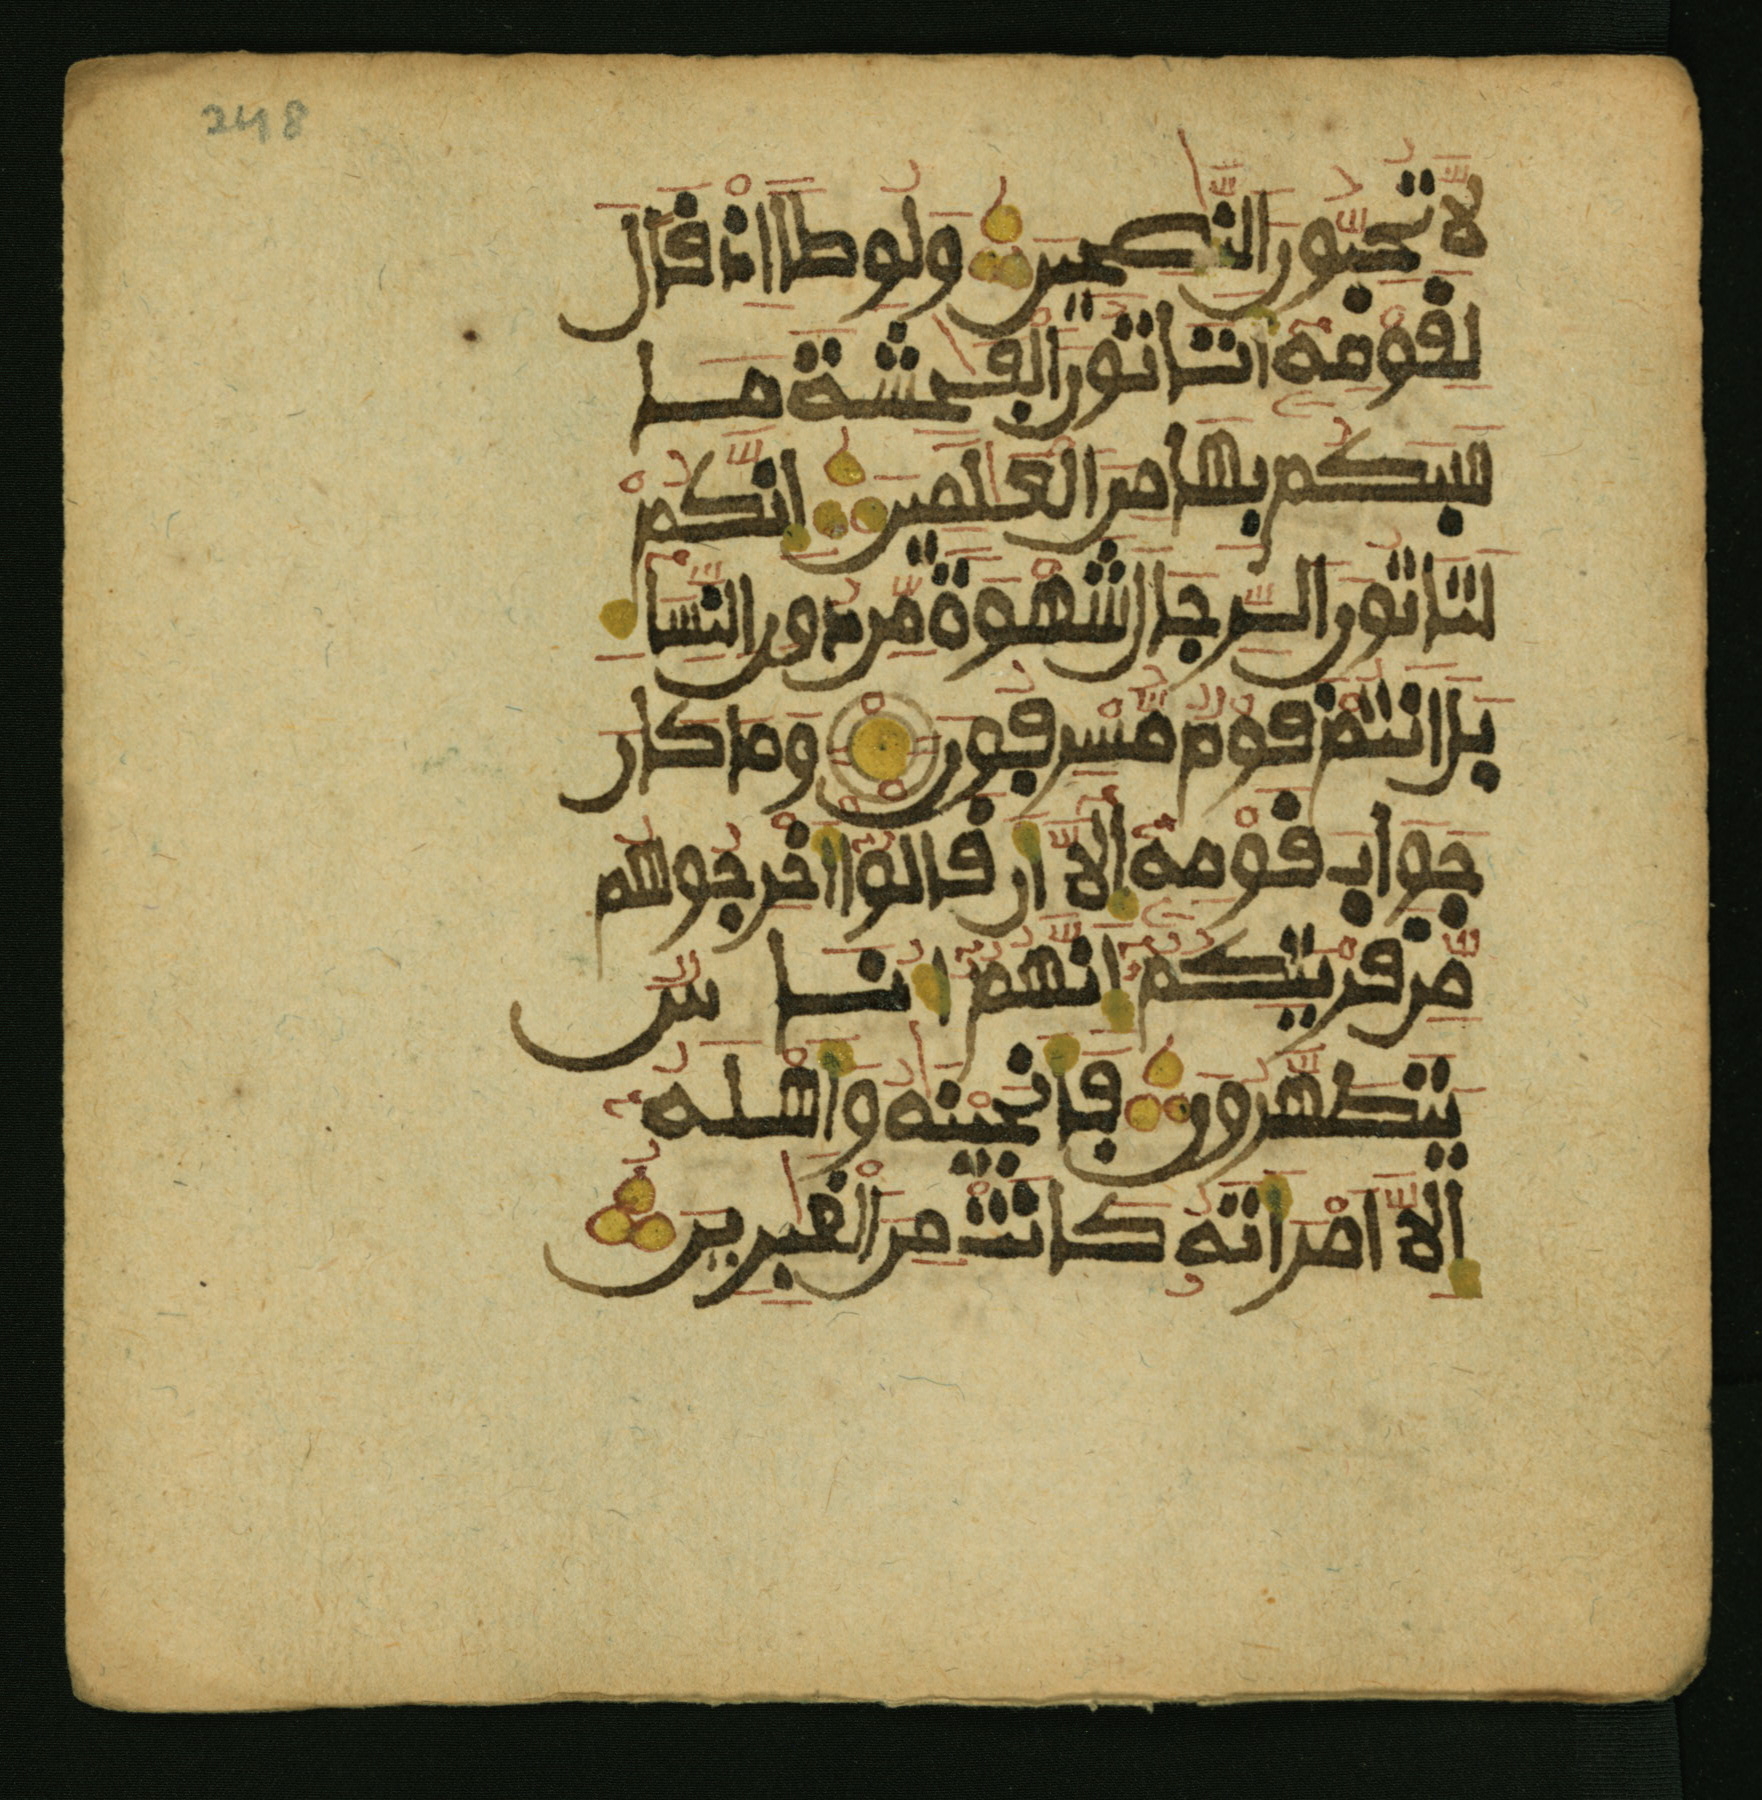 248
لا تحبون النصحين ولوطا اذ قال
لقومه اتاتون الفحشة ما
سبقكم بها من العلمين انكم
لتاتون الرجال شهوة من دون النسا
بل انتم قوم مسرفون وما كان
جواب قومه الا ان قالوا اخرجوهم
من قريتكم انهم اناس
يتطهرون فانجينه واهله
الا امراته كانت من الغبرين